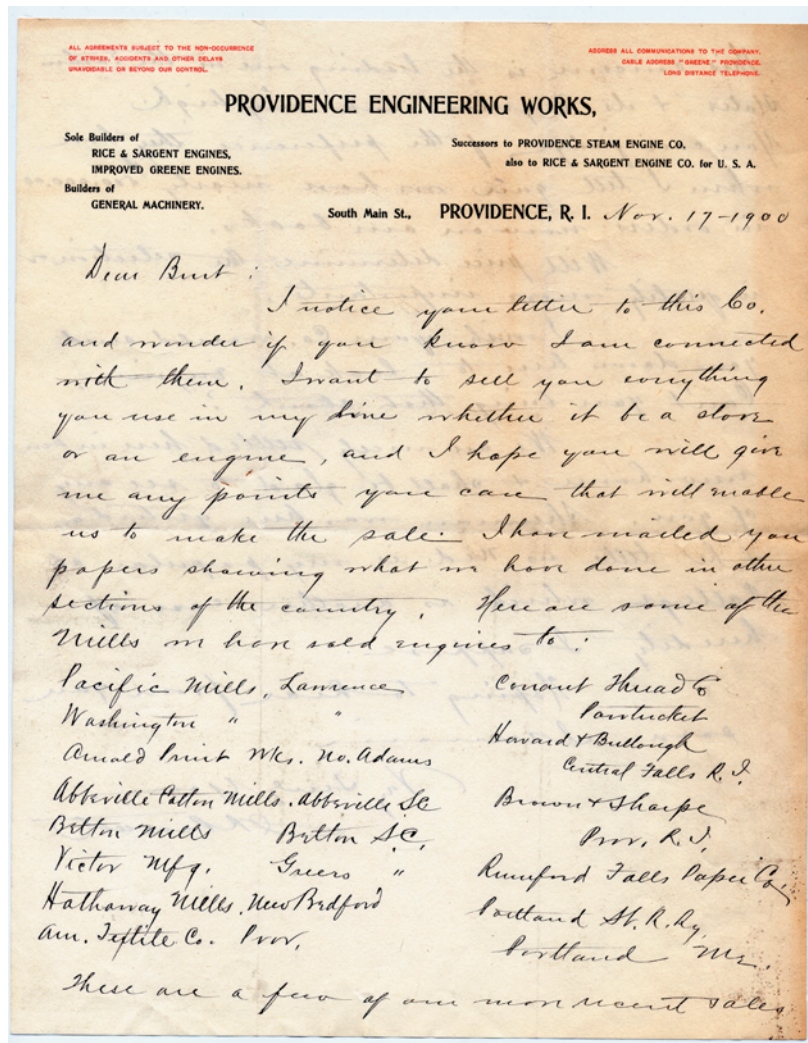 ALL AGREEMENTS SUBJECT TO THE NON-OCCURRENCE
OF STRIKES, ACCIDENTS AND OTHER DELAYS
UNAVOIDABLE OR BEYOND OUR CONTROL.
ADDRESS ALL COMMUNICATIONS TO THE COMPANY.
CABLE ADDRESS "GREENE" PROVIDENCE.
LONG DISTANCE TELEPHONE.
PROVIDENCE ENGINEERING WORKS,
Sole Builders of
RICE & SARGENT ENGINES,
IMPROVED GREENE ENGINES.
Builders of
GENERAL MACHINERY.
Successors to PROVIDENCE STEAM ENGINE CO.
also to RICE & SARGENT ENGINE CO. for U. S. A.
South Main St., PROVIDENCE, R. I. Nov. 17-1900
Dear Burt:
I notice your letter to this Co.
and wonder if you know I am connected
with them. I want to sell you everything
you use in my line whether it be a stove
or an engine, and I hope you will give
me any points you can that will enable
us to make the sale. I have mailed you
papers showing what we have done in other
sections of the country. Here are some of the
Mills we have sold engines to:
Pacific Mills, Lawrence
Washington " "
Arnold Print Wks. No. Adams
Abbeville Cotton Mills. Abbeville SC
Belton Mills Belton S.C.
Victor Mfg. Greers "
Hathaway Mills. New Bedford
Am. Textile Co. Prov.
Conant Thread Co
Pawtucket
Howard & Bullough
Central Falls R.I.
Brown & Sharpe
Prov. R.I.
Rumford Falls Paper Co.
Portland St. R. Ry.
Portland Me.
These are a few of our more recent sales